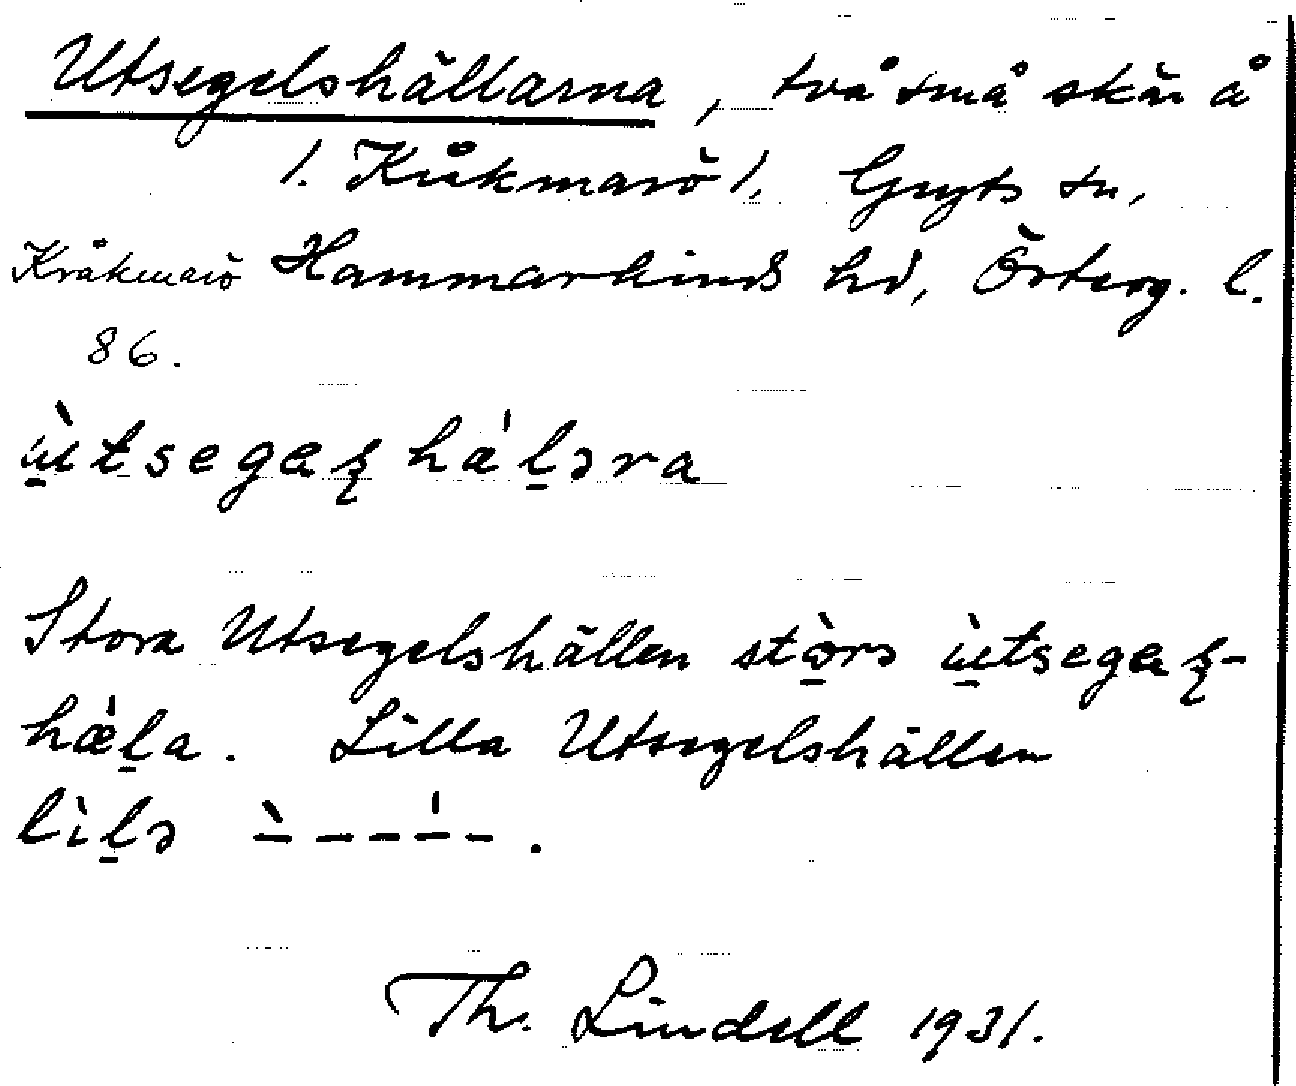 Utsegelshällarna, två små skär å
1. Kråkmarö 1. Gryts sn,
Kråkmarö Hammarkinds hd, Österg. l.
86.
ùtsegaʂ hæ̀l̠əra
Stora Utsegelshällen stòrə ùtsegaʂ-
hæ̀l̠a. Lilla Utsegelshällen
lìl̠ə ̀– – – – ́– –.
Th. Lindell 1931.